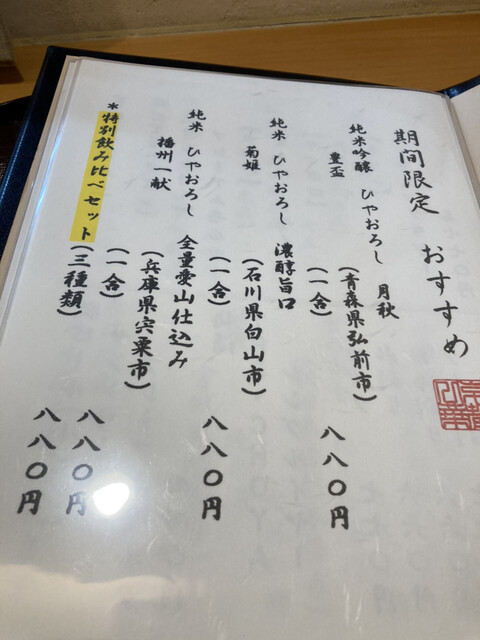 期間限定 おすすめ
純米吟醸 ひやおろし 月秋
豊盃 (青森県弘前市)
(一合) 八八〇円
純米 ひやおろし 濃醇旨口
菊姫 (石川県白山市)
(一合) 八八〇円
純米 ひやおろし 全量愛山仕込み
播州一献 (兵庫県宍粟市)
(一合) 八八〇円
*特別飲み比べセット(三種類) 八八〇円